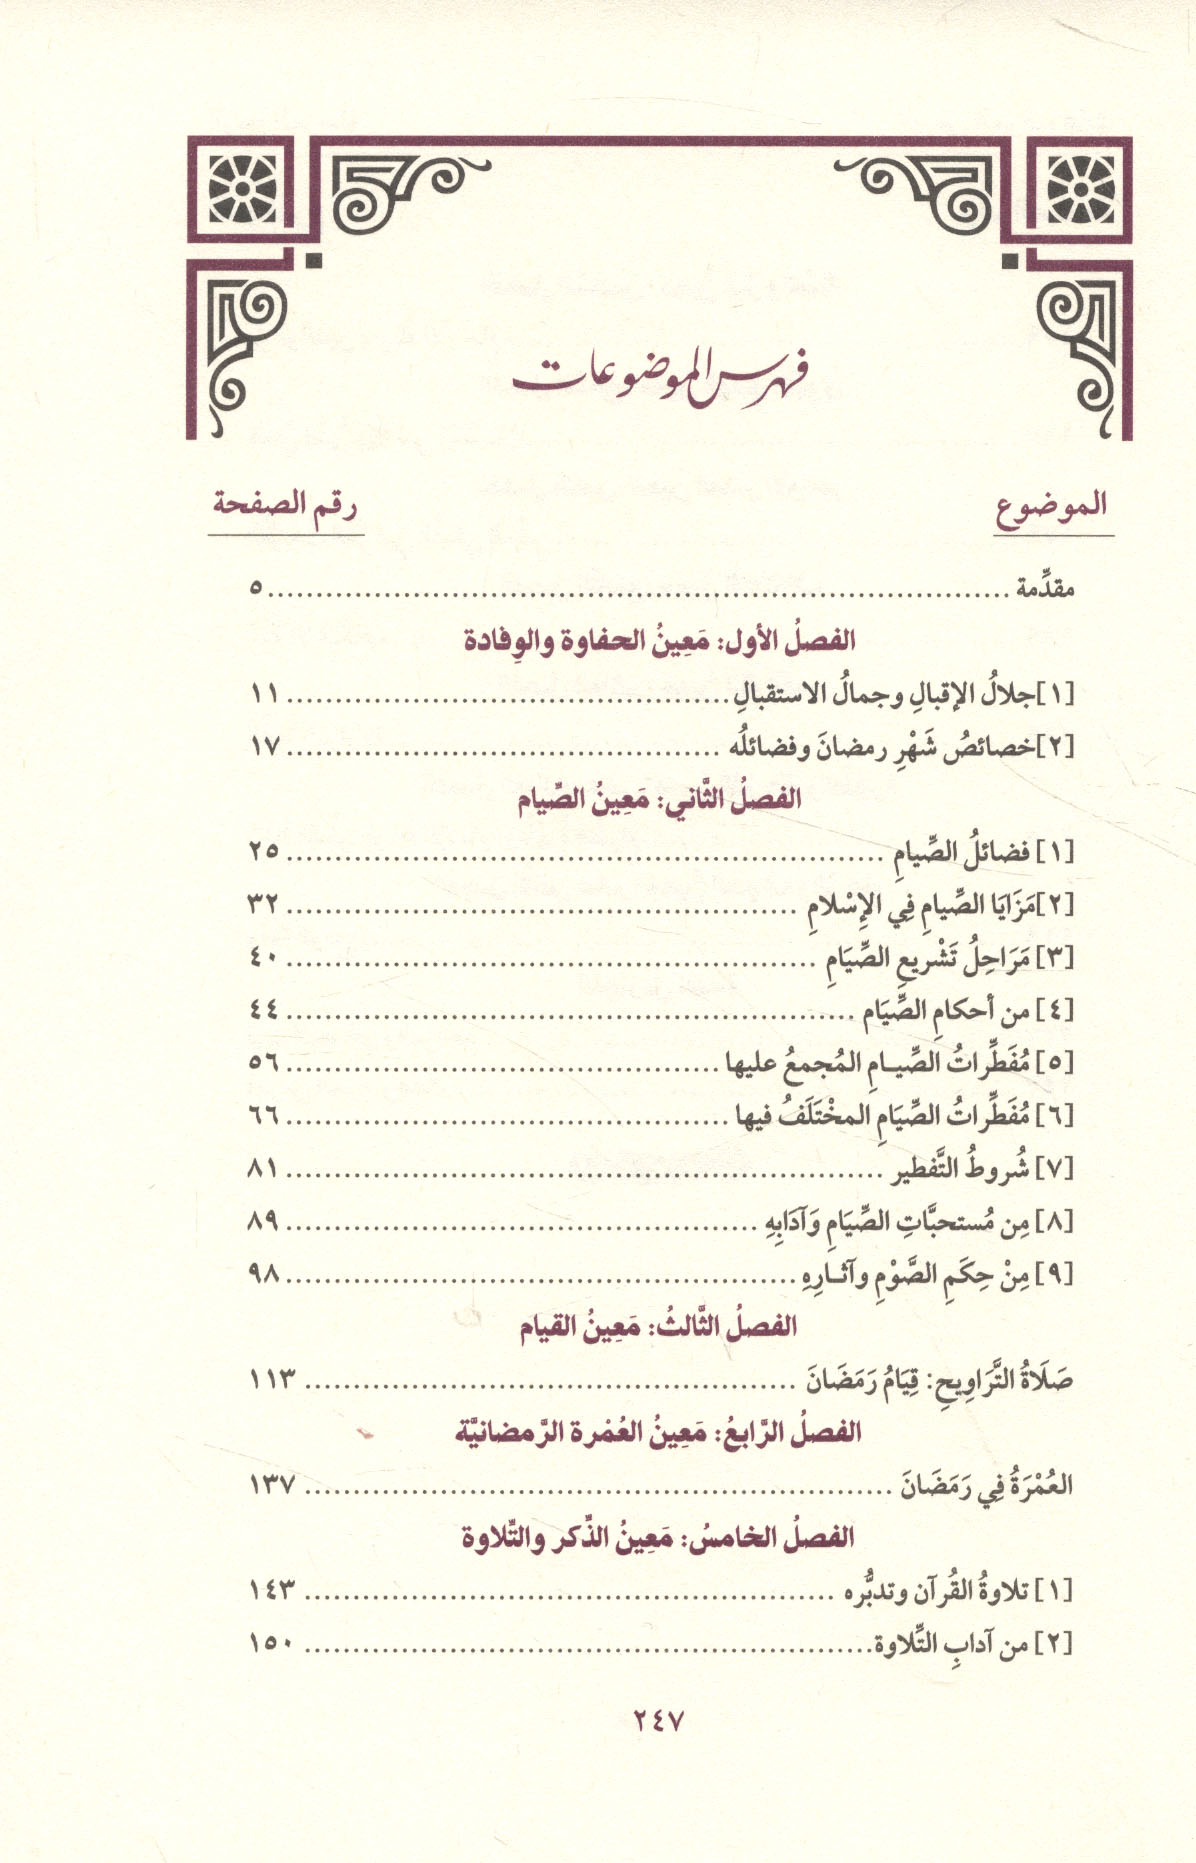 فهرس الموضوعات
الموضوع رقم الصفحة
مقدِّمة ٥
الفصلُ الأول: مَعِينُ الحفاوة والوِفادة
[١] جلالُ الإقبالِ وجمالُ الاستقبالِ ١١
[٢] خصائصُ شَهْرِ رمضانَ وفضائلُه ١٧
الفصلُ الثَّاني: مَعِينُ الصِّيام
[١] فضائلُ الصِّيامِ ٢٥
[٢] مَزَايَا الصِّيامِ فِي الإِسْلامِ ٣٢
[٣] مَرَاحِلُ تَشْرِيعِ الصِّيَامِ ٤٠
[٤] من أحكامِ الصِّيَام ٤٤
[٥] مُفَطِّراتُ الصِّيـامِ المُجمعُ عليها ٥٦
[٦] مُفَطِّراتُ الصِّيَامِ المخْتَلَفُ فيها ٦٦
[٧] شُروطُ التَّفطير ٨١
[٨] مِن مُستحبَّاتِ الصِّيَامِ وَآدَابِهِ ٨٩
[٩] مِنْ حِكَمِ الصَّوْمِ وآثـارِهِ ٩٨
الفصلُ الثَّالثُ: مَعِينُ القيام
صَلَاةُ التَّرَاوِيحِ: قِيَامُ رَمَضَانَ ١١٣
الفصلُ الرَّابعُ: مَعِينُ العُمْرة الرَّمضانيَّة
العُمْرَةُ فِي رَمَضَانَ ١٣٧
الفصلُ الخامسُ: مَعِينُ الذِّكر والتِّلاوة
[١] تلاوةُ القُرآن وتدبُّره ١٤٣
[٢] من آدابِ التِّلاوة ١٥٠
٢٤٧